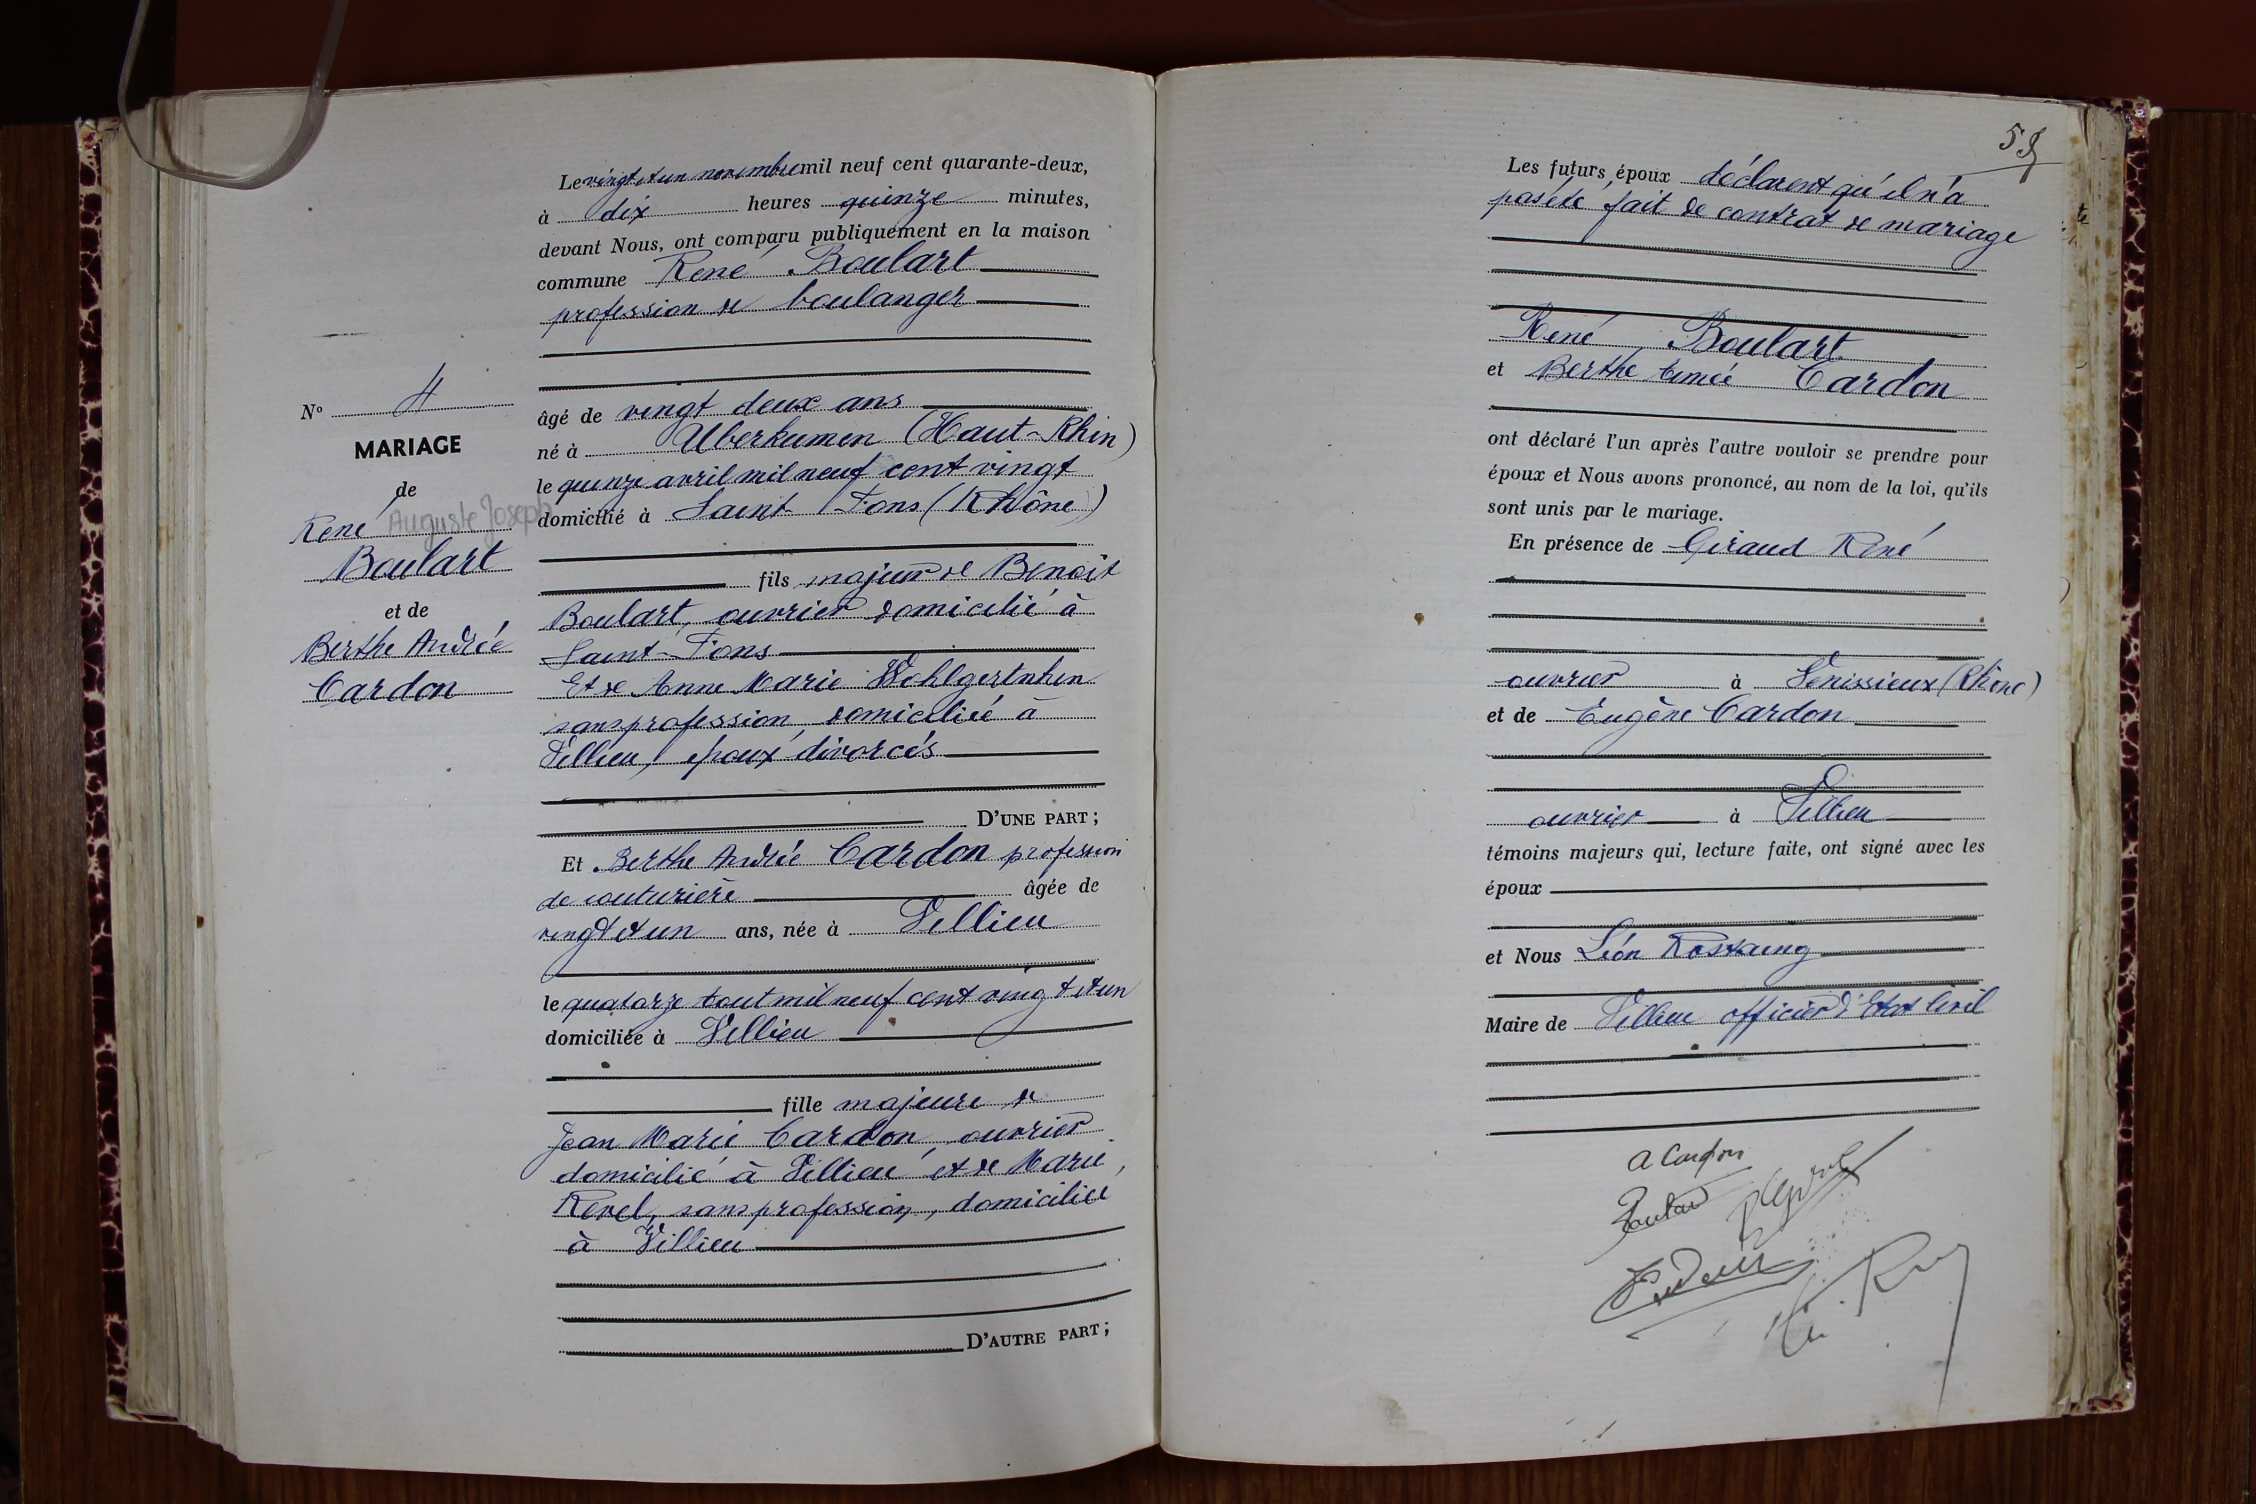 Le vingt et un novembre mil neuf cent quarante-deux,
à dix heures quinze minutes,
devant Nous, ont comparu publiquement en la maison
commune René Boulart
profession de boulanger
N° 4
MARIAGE
de
René Auguste Joseph
Boulart
et de
Berthe Andrée
Cardon
âgé de vingt deux ans
né à Uberkumen (Haut-Rhin)
le quinze avril mil neuf cent vingt
domicilié à Saint Fons (Rhône)
fils majeur de Benoît
Boulart, ouvrier domicilié à
Saint-Fons
Et de Anne Marie
sans profession, domiciliée à
Villieu, époux divorcés
D'UNE PART ;
Et Berthe Andrée Cardon profession
de couturière âgée de
vingt et un ans, née à Villieu
le quatorze aout mil neuf cent vingt et un
domiciliée à Villieu
fille majeure de
Jean Marie Cardon, ouvrier
domicilié à Villieu et de Marie
Revel, sans profession, domiciliée
à Villieu
D'AUTRE PART ;
58
Les futurs époux déclarent qu'il n'a
pas été fait de contrat de mariage
René Boulart
et Berthe Cardon
ont déclaré l'un après l'autre vouloir se prendre pour
époux et Nous avons prononcé, au nom de la loi, qu'ils
sont unis par le mariage.
En présence de Giraud René
ouvrier à Vénissieux (Rhône)
et de Eugène Cardon
ouvrier à Villieu
témoins majeurs qui, lecture faite, ont signé avec les
époux
et Nous Léon Rostaing
Maire de Villieu officier d'Etat Civil
A Cardon
Boulart